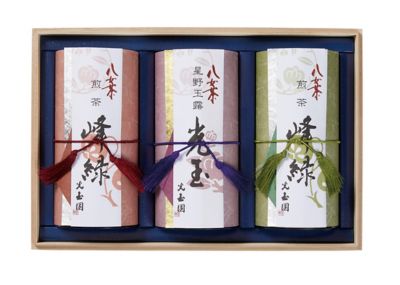 八女茶
煎茶
峰緑
光玉園
八女茶
星野玉露
光玉
光玉園
八女茶
煎茶
峰緑
光玉園